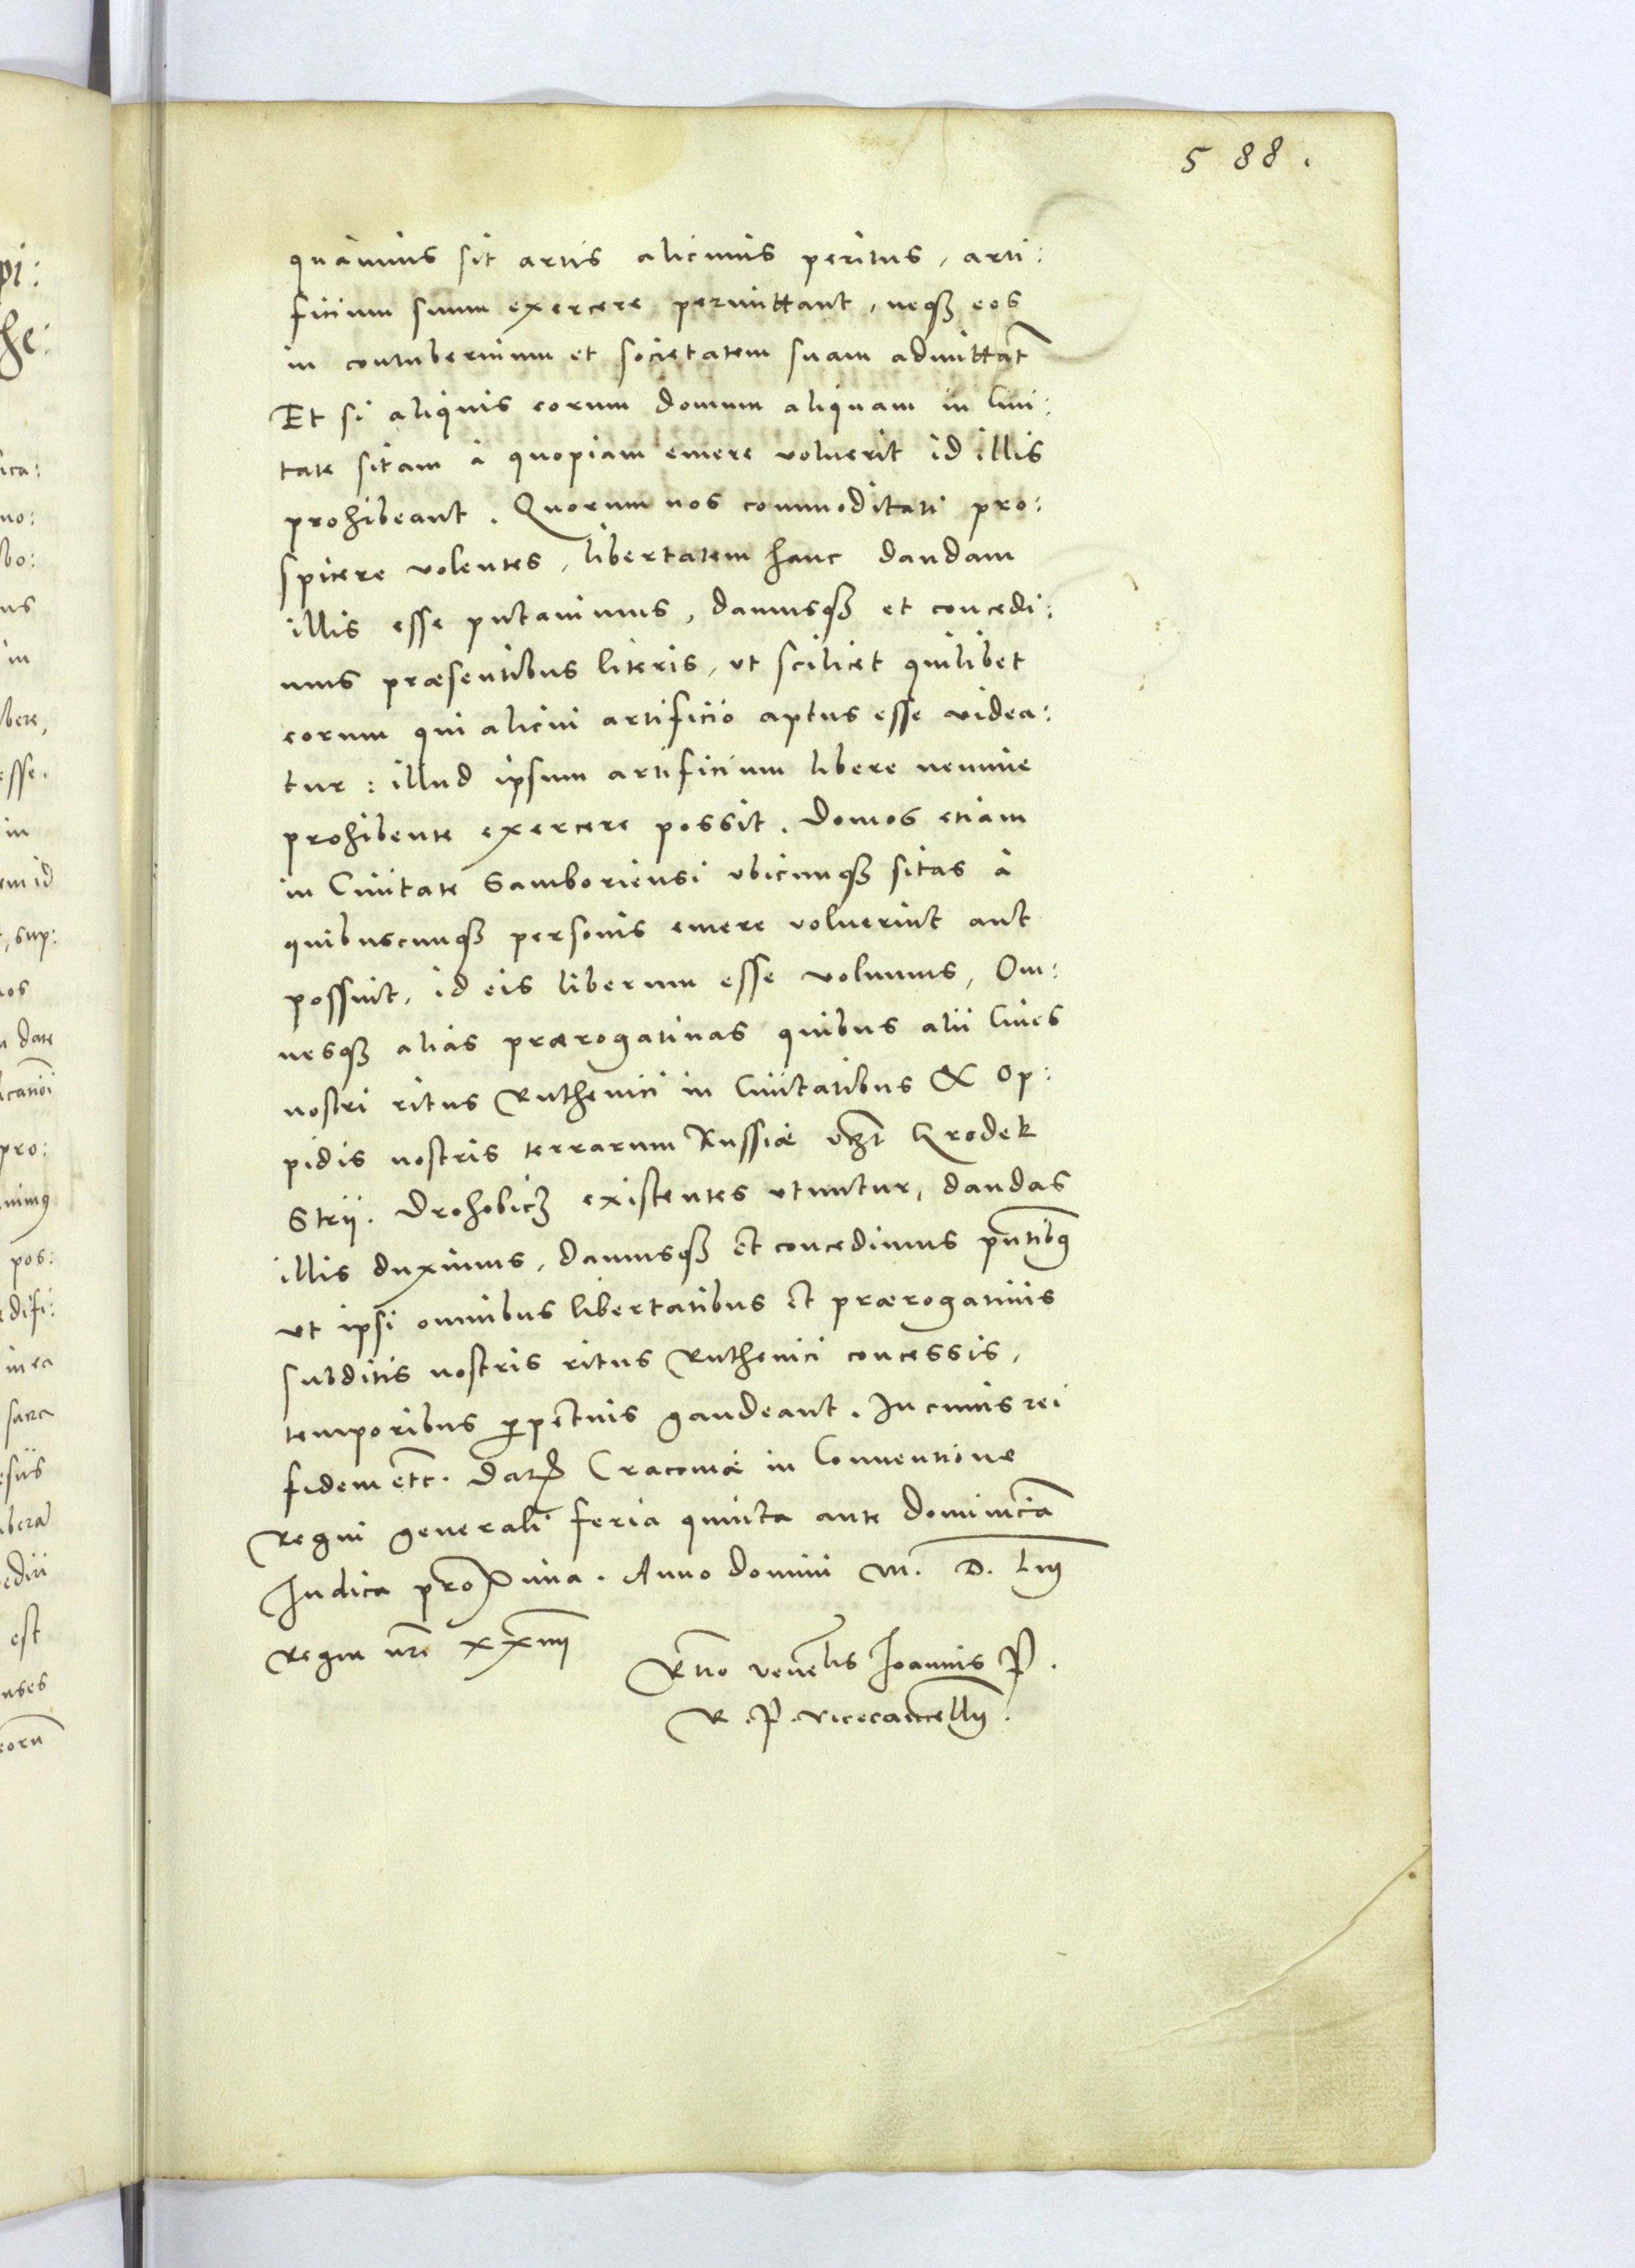 588.
quamuis sit artis alicuius peritus, arti:
ficium suum exercere permittant, neqȝ eos
in contubernium et societatem suam admittāt
Et si aliquis eorum domum aliquam in Ciui:
tate sitam à quopiam emere voluerit id illis
prohibeant. Quorum nos commoditati pro:
spicere volentes, libertatem hanc dandam
illis esse putauimus, damusqȝ et concedi:
mus præsentibus literis, vt scilicet quilibet
eorum qui alicui artificio aptus esse videa:
tur: illud ipsum artificium libere nemine
prohibente exercere possit. Domos etiam
in Ciuitate Samboriensi vbicunqȝ sitas à
quibuscunqȝ personis emere voluerint aut
possint, id eis liberum esse volumus, Om:
nesqȝ alias prærogatiuas quibus alii Ciues
nostri ritus Ruthenici in Ciuitatibus & Op:
pidis nostris terrarum Russiæ vȝt Grodek
Strij. Drohobicȝ existentes vtuntur, dandas
illis duximus, damusqȝ et concedimus pn̄tibꝰ
vt ipsi omnibus libertatibus et prærogatiuis
subditis nostris ritus Ruthenici concessis,
temporibus ꝑpetuis gaudeant. In cuius rei
fidem etc. Datꝭ Cracouiæ in Conuentione
Regni generali feria quinta ante Dominicā
Iudica proxima. Anno Domini M. D. Liij
Regni nr̄i xxiiij
Rtio veneblis Joannis P.
R. P. vicecancellij.